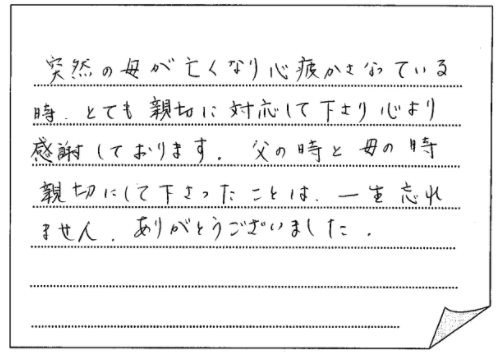 突然の母が亡くなり心疲かさなっている
時、とても親切に対応して下さり心より
感謝しております。父の時と母の時
親切にして下さったことは、一生忘れ
ません。ありがとうございました。